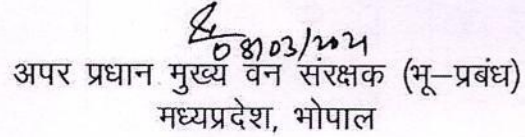 08/03/2021
अपर प्रधान मुख्य वन संरक्षक (भू–प्रबंध)
मध्यप्रदेश, भोपाल